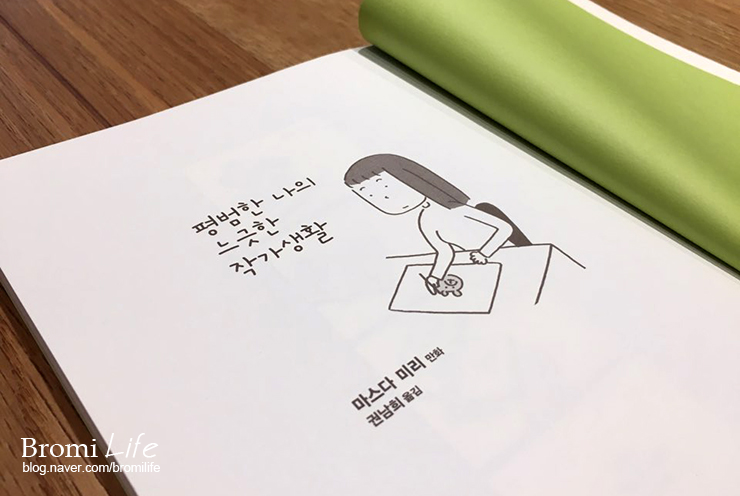 평범한 나의
느긋한
작가생활
마스다 미리 만화
권남희 옮김
Bromi Life
blog.naver.com/bromilife